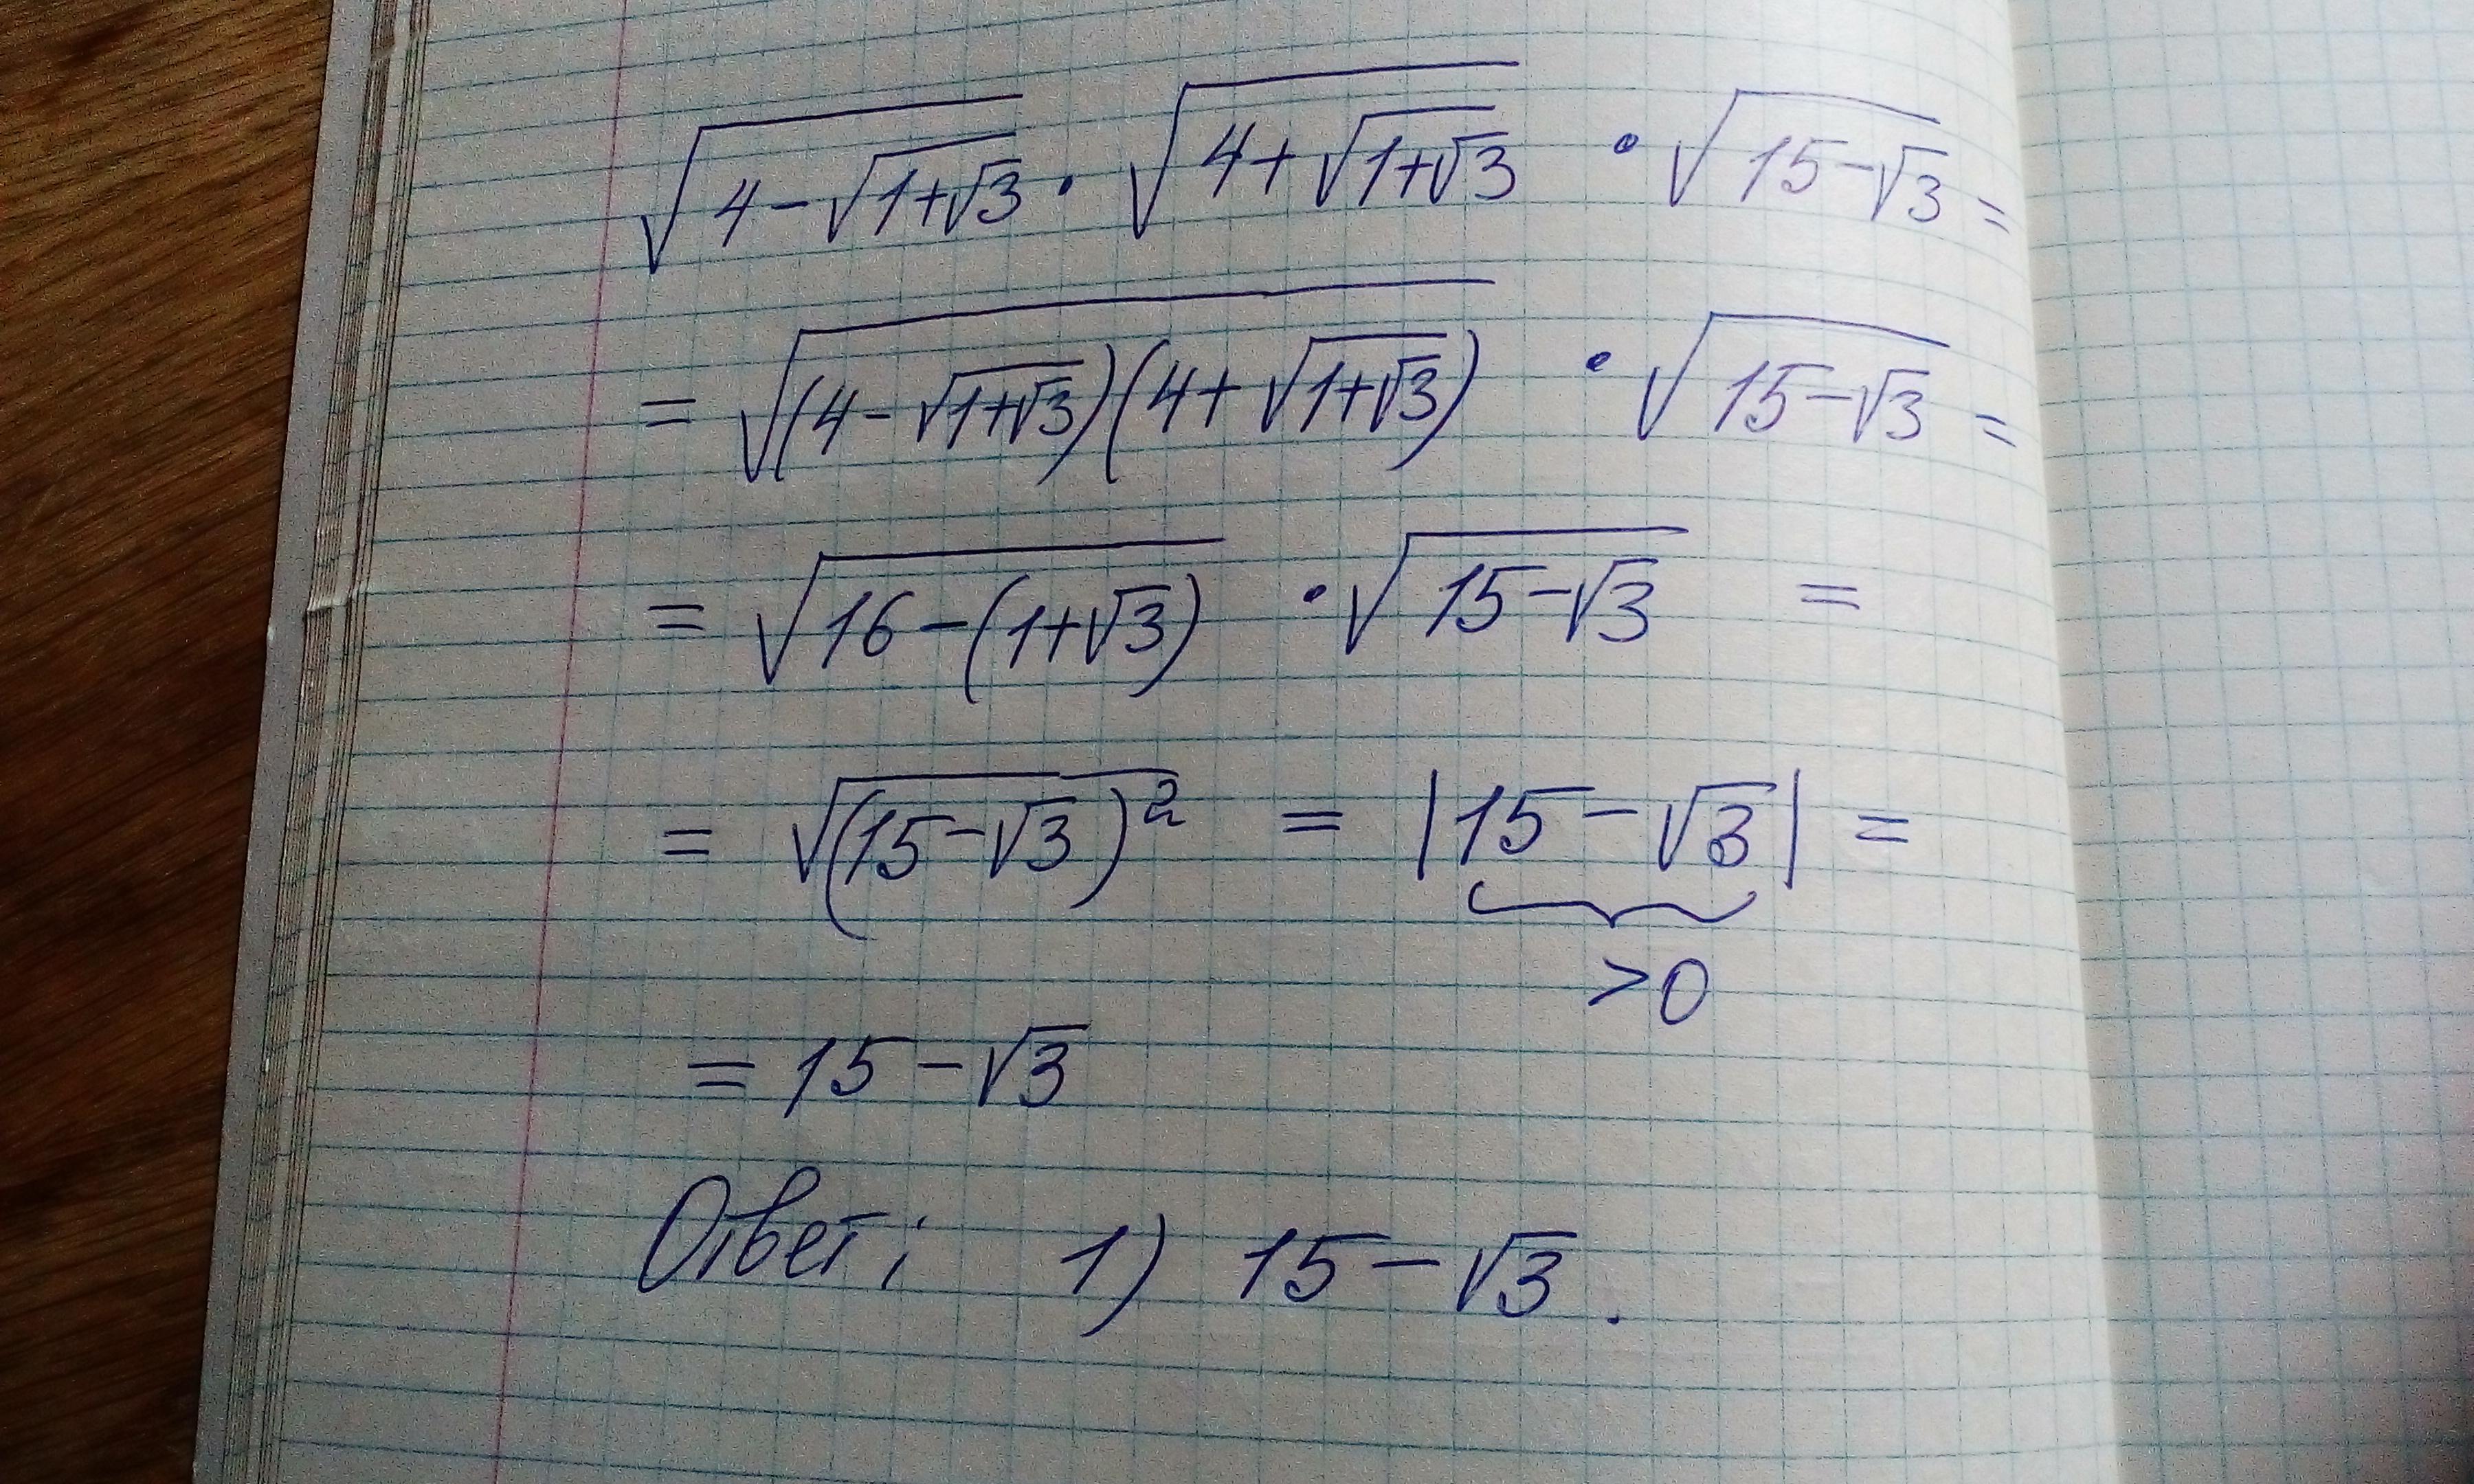 √(4-√(1+√3)) · √(4+√(1+√3)) · √(15-√3) =
= √((4-√(1+√3))(4+√(1+√3))) · √(15-√3) =
= √(16-(1+√3)) · √(15-√3) =
= √((15-√3)²) = |15-√3| =
>0
= 15-√3
Ответ: 1) 15-√3.